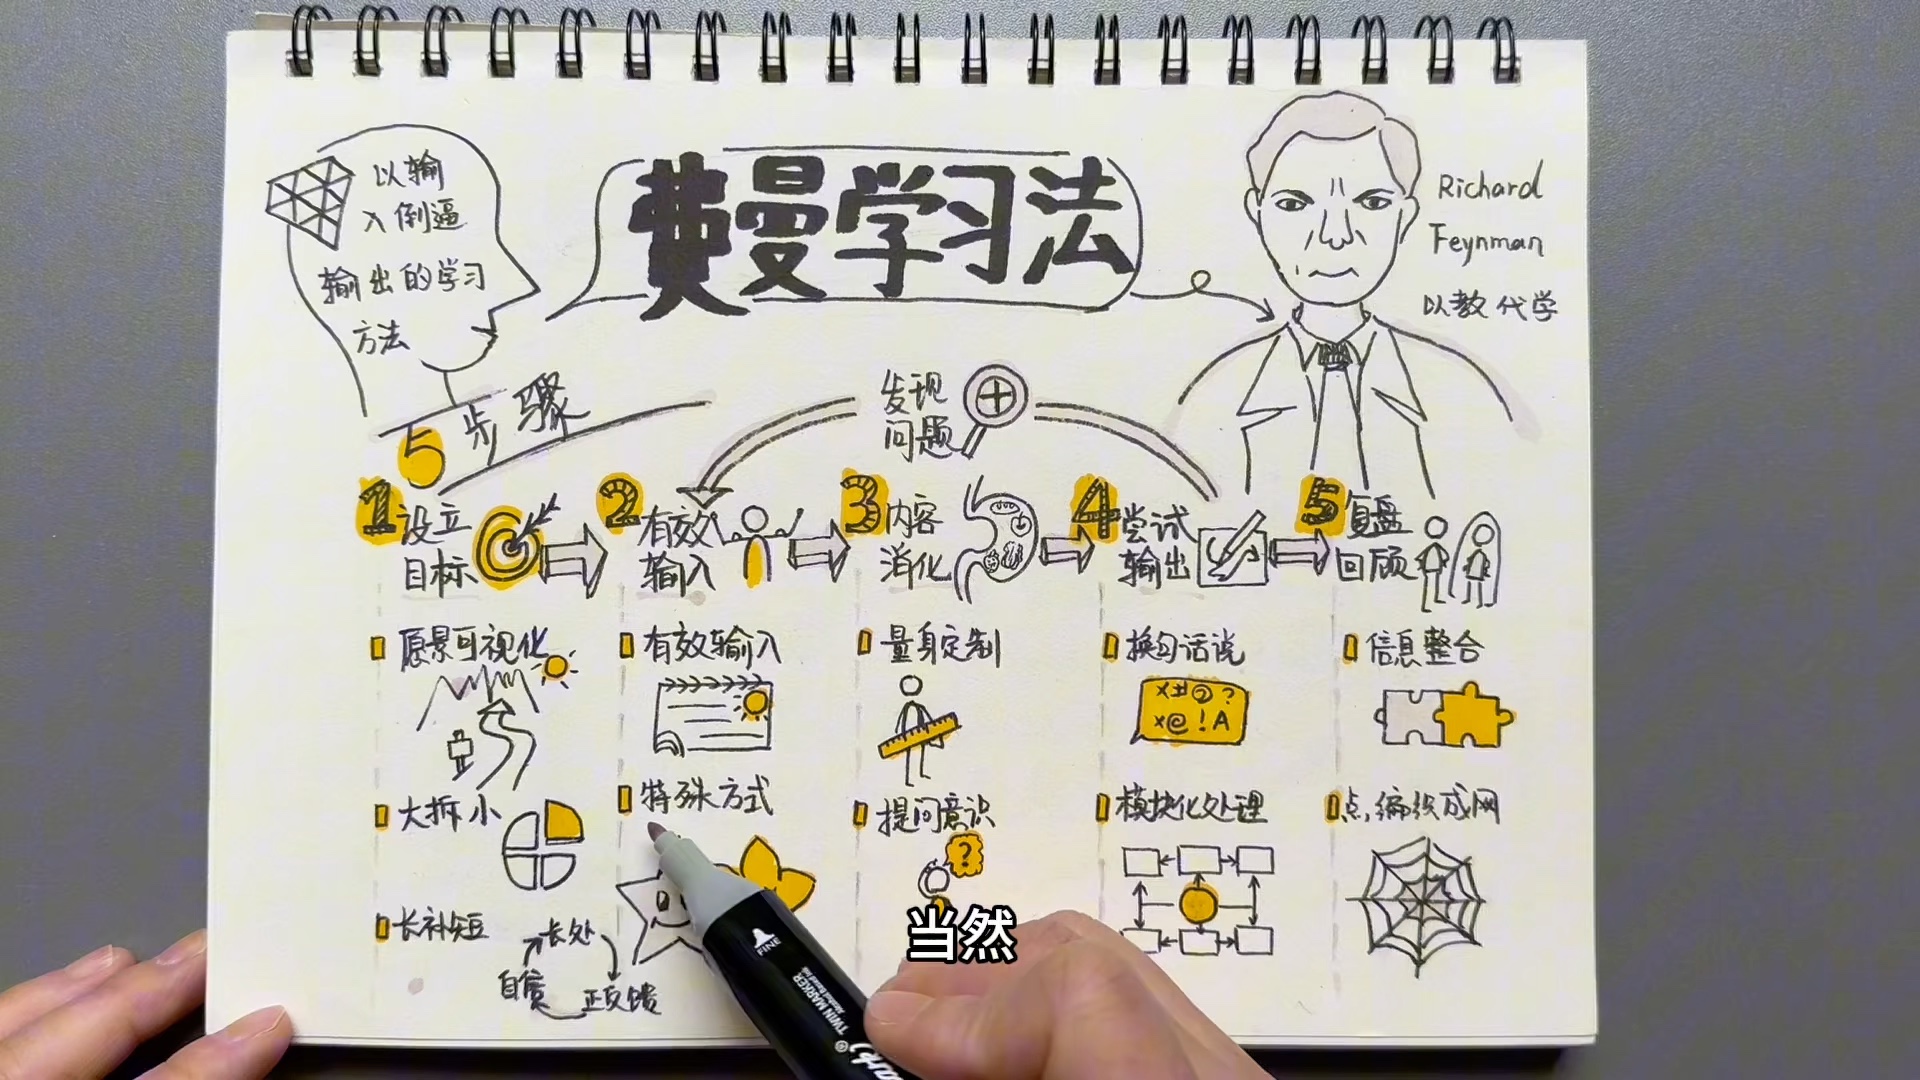 以输
入倒逼
输出的学习
方法
费曼学习法
Richard
Feynman
以教代学
5步骤
发现
问题
1 设立
目标
2 有效
输入
3 内容
消化
4 尝试
输出
5 复盘
回顾
愿景可视化
大拆小
长补短
长处
自信
正反馈
有效输入
特殊方式
量身定制
提问意识
?
换句话说
x#@?
x@!A
模块化处理
信息整合
点,编织成网
FINE
TWIN MARKER
当然